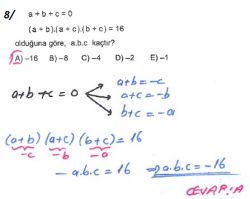 8/ a + b + c = 0
(a + b).(a + c).(b + c) = 16
olduğuna göre, a.b.c kaçtır?
A) -16 B) -8 C) -4 D) -2 E) -1
a+b=-c
a+b+c=0 a+c=-b
b+c=-a
(a+b) (a+c) (b+c) = 16
-c -b -a
-a.b.c = 16 ⇒ a.b.c = -16
CEVAP:A